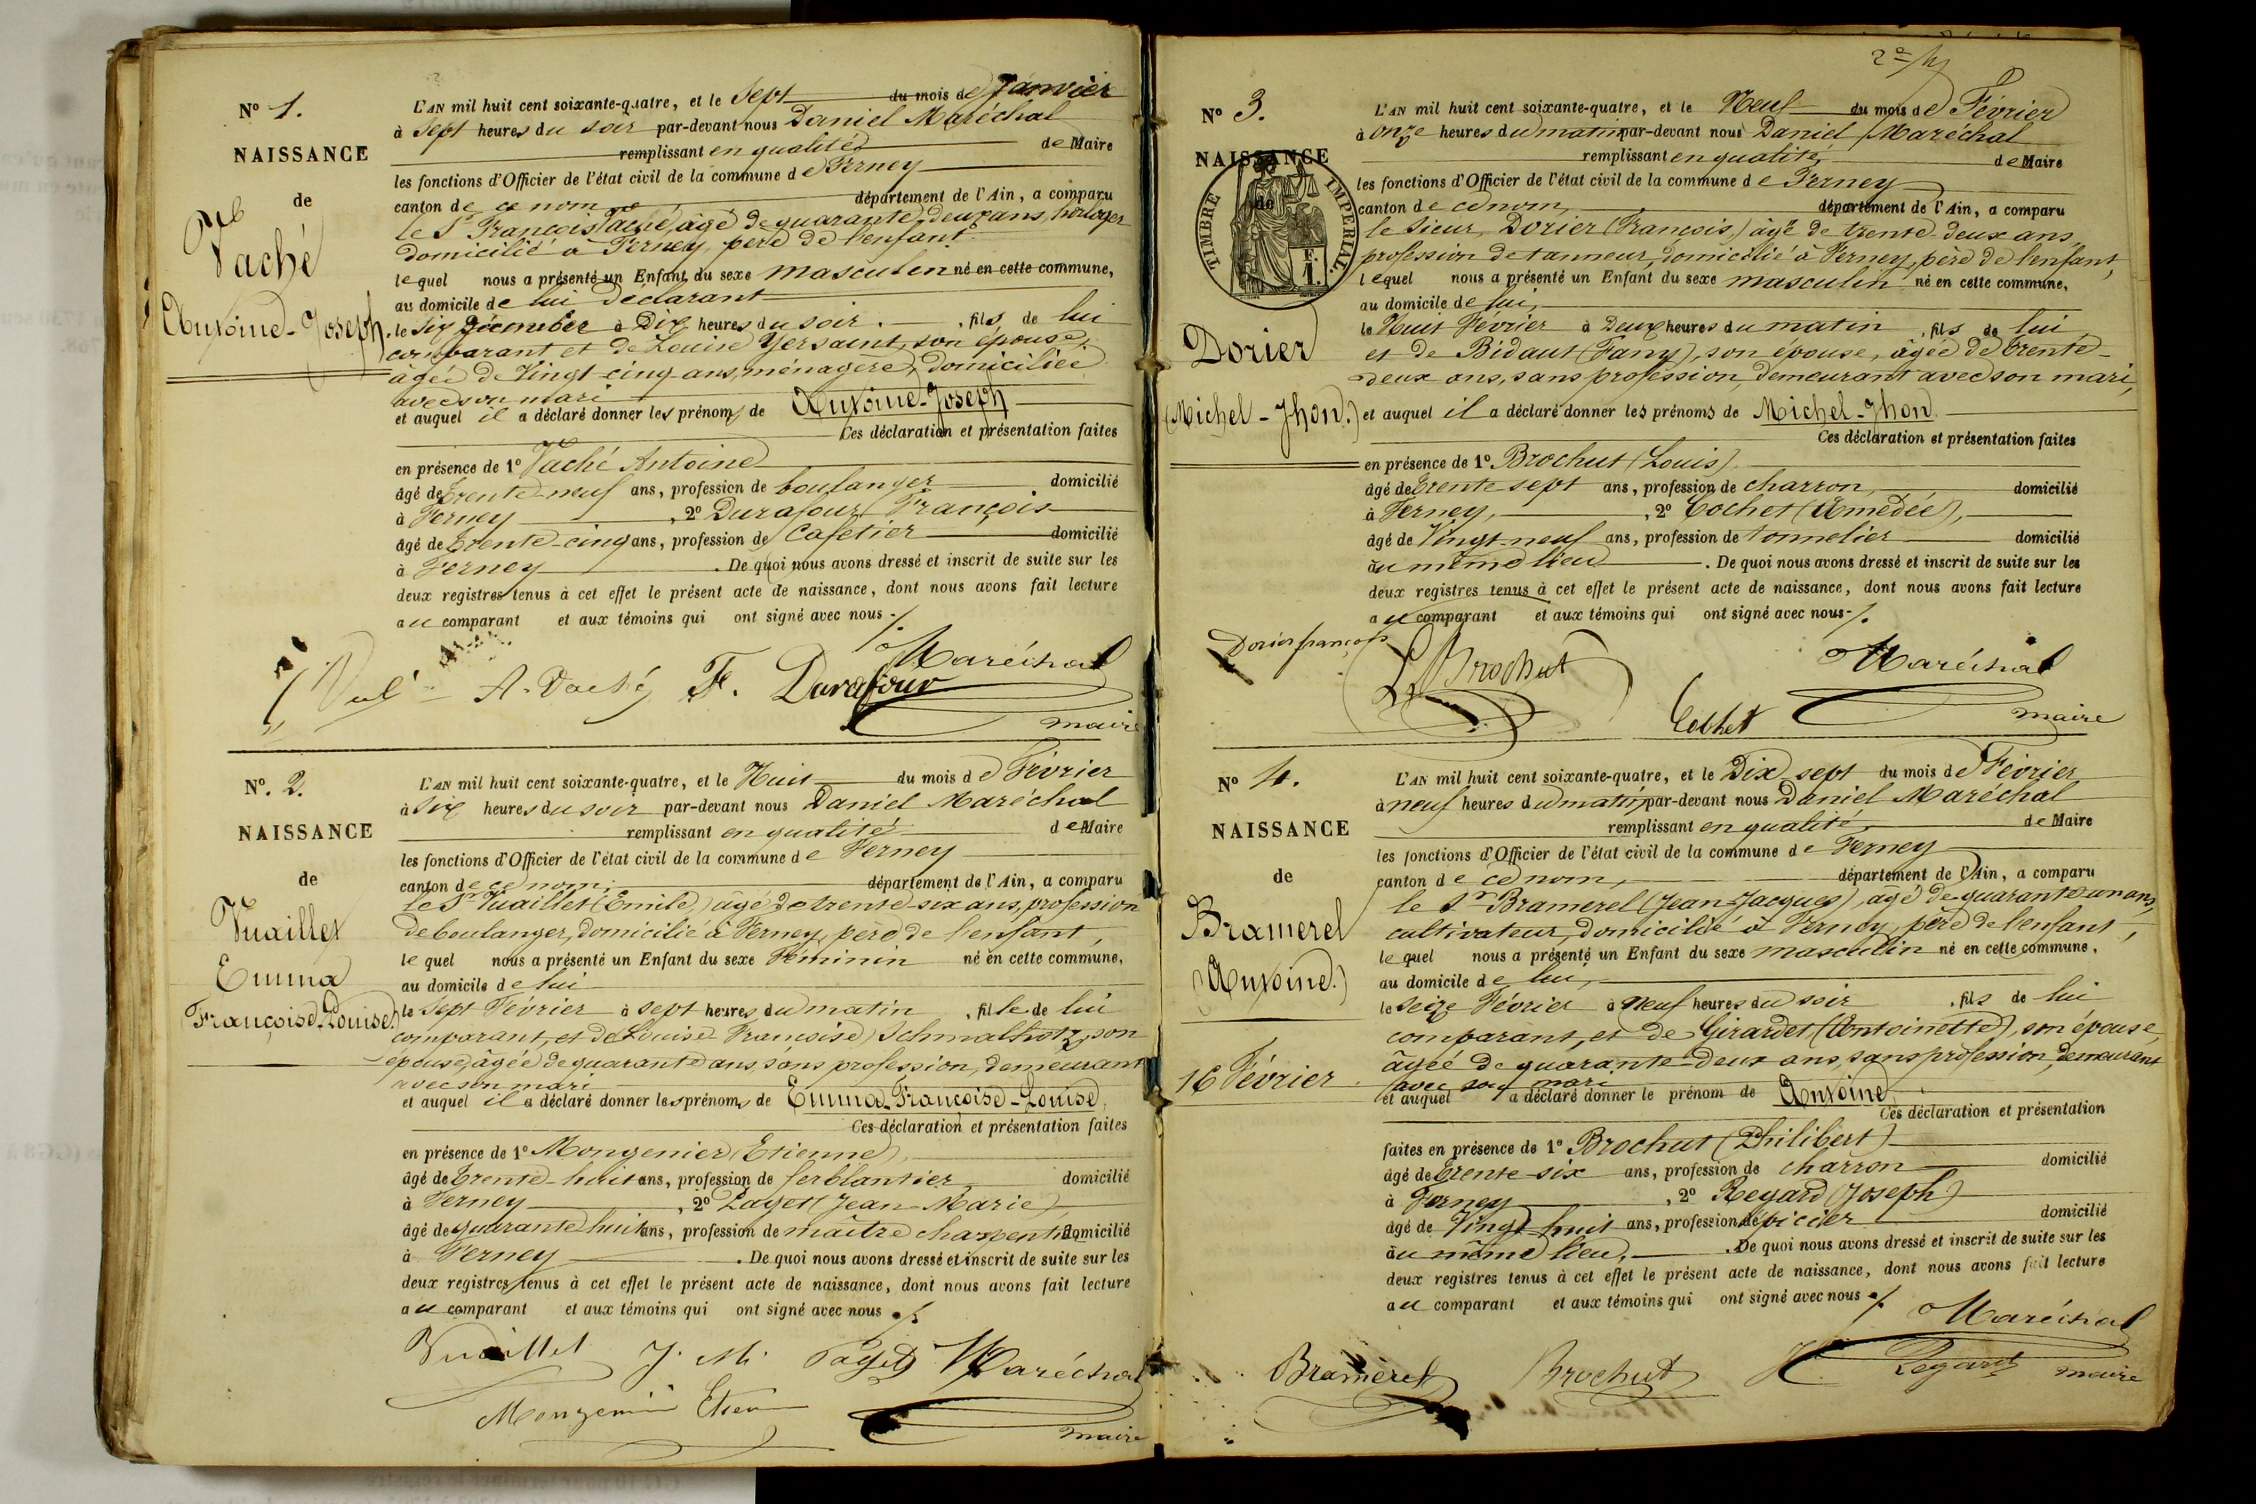 No 1.
NAISSANCE
de
Vaché
Antoine-Joseph.
L'AN mil huit cent soixante-quatre, et le Sept du mois de Janvier
à Sept heures du soir par-devant nous Daniel Maréchal
remplissant en qualité de Maire
les fonctions d'Officier de l'état civil de la commune de Ferney
canton de ce nom département de l'Ain, a comparu
le Sr François Vaché, âgé de quarante-deux ans, horloger
domicilié à Ferney, père de l'enfant
lequel nous a présenté un Enfant du sexe masculin né en cette commune,
au domicile de lui Déclarant
le six à Dix heures du soir. , fils de lui
comparant et de Louise Yersaint, son épouse,
âgée de Vingt-cinq ans, ménagère, domiciliée
avec son mari
et auquel il a déclaré donner les prénoms de Antoine-Joseph
Ces déclaration et présentation faites
en présence de 1o Vaché Antoine
âgé de trente-neuf ans, profession de boulanger domicilié
à Ferney , 2o Durafour François
âgé de trente-cinq ans, profession de Cafetier domicilié
à Ferney . De quoi nous avons dressé et inscrit de suite sur les
deux registres tenus à cet effet le présent acte de naissance, dont nous avons fait lecture
au comparant et aux témoins qui ont signé avec nous ./.
A. Vaché F. Durafour Maréchal
maire
No. 2.
NAISSANCE
de
Vuaillet
Emma
Françoise-Louise
L'AN mil huit cent soixante-quatre, et le Huit du mois de Février
à six heures du soir par-devant nous Daniel Maréchal
remplissant en qualité de Maire
les fonctions d'Officier de l'état civil de la commune de Ferney
canton de ce nom, département de l'Ain, a comparu
le Sr Vuaillet (Emile) âgé de trente-six ans, profession
de boulanger, domicilié à Ferney, père de l'enfant,
lequel nous a présenté un Enfant du sexe Féminin né en cette commune,
au domicile de lui
le sept Février à sept heures du matin , fille de lui
comparant, et de Louise Françoise Schmalhotz, son
épouse, âgée de quarante ans, sans profession, demeurant
avec son mari
et auquel il a déclaré donner les prénoms de Emma-Françoise-Louise,
Ces déclaration et présentation faites
en présence de 1o Mongenier (Etienne)
âgé de trente-huit ans, profession de ferblantier domicilié
à Ferney , 2o Paget (Jean-Marie)
âgé de quarante huit ans, profession de maître charpentier domicilié
à Ferney . De quoi nous avons dressé et inscrit de suite sur les
deux registres tenus à cet effet le présent acte de naissance, dont nous avons fait lecture
au comparant et aux témoins qui ont signé avec nous ./.
Vuaillet J. M. Paget Maréchal
maire
No 3.
NAISSANCE
de
TIMBRE IMPÉRIAL.
F.
1.
Dorier
(Michel-Jhon.)
L'AN mil huit cent soixante-quatre, et le Neuf du mois de Février
à onze heures du matin par-devant nous Daniel Maréchal
remplissant en qualité, de Maire
les fonctions d'Officier de l'état civil de la commune de Ferney
canton de ce nom, département de l'Ain, a comparu
le Sieur, Dorier (François,) âgé de trente-deux ans,
profession de tanneur, domicilié à Ferney, père de l'enfant,
lequel nous a présenté un Enfant du sexe masculin né en cette commune,
au domicile de lui,
le Huit Février à Deux heures du matin , fils de lui
et de Bidaut (Fany), son épouse, âgée de trente-
deux ans, sans profession, demeurant avec son mari,
et auquel il a déclaré donner les prénoms de Michel-Jhon
Ces déclaration et présentation faites
en présence de 1o Brochut (Louis)
âgé de trente sept ans, profession de charron, domicilié
à Ferney, , 2o Cochet (Amédée),
âgé de Vingt-neuf ans, profession de tonnelier domicilié
au même lieu . De quoi nous avons dressé et inscrit de suite sur les
deux registres tenus à cet effet le présent acte de naissance, dont nous avons fait lecture
au comparant et aux témoins qui ont signé avec nous ./.
Dorier françois L. Brochut Cochet Maréchal
maire
No 4.
NAISSANCE
de
Bramerel
(Antoine.)
16 Février
L'AN mil huit cent soixante-quatre, et le Dix sept du mois de Février
à neuf heures du matin, par-devant nous Daniel Maréchal
remplissant en qualité, de Maire
les fonctions d'Officier de l'état civil de la commune de Ferney
canton de ce nom, département de l'Ain, a comparu
le Sr Bramerel (Jean-Jacques), âgé de quarante un ans,
cultivateur, domicilié à Ferney, père de l'enfant,
lequel nous a présenté un Enfant du sexe masculin né en cette commune,
au domicile de lui,
le Seize Février à Neuf heures du soir , fils de lui
comparant, et de Girardet (Antoinette), son épouse,
âgée de quarante-deux ans, sans profession, demeurant
avec son mari
et auquel a déclaré donner le prénom de Antoine
Ces déclaration et présentation
faites en présence de 1o Brochut (Philibert)
âgé de trente six ans, profession de charron domicilié
à Ferney , 2o Regard (Joseph)
âgé de Vingt huit ans, profession d'épicier domicilié
au même lieu. . De quoi nous avons dressé et inscrit de suite sur les
deux registres tenus à cet effet le présent acte de naissance, dont nous avons fait lecture
au comparant et aux témoins qui ont signé avec nous ./.
Bramerel Brochut Regard Maréchal
maire